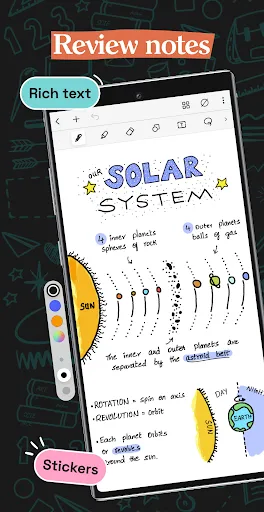 Review notes
Rich text
OUR
SOLAR
SYSTEM
4 inner planets
spheres of rock
4 outer planets
balls of gas
SUN
The inner and outer planets are
separated by the astroid belt
• ROTATION = spin on axis
• REVOLUTION = orbit
• Each planet orbits
or revolves
around the sun.
DAY
NIGHT
SUN
EARTH
Stickers